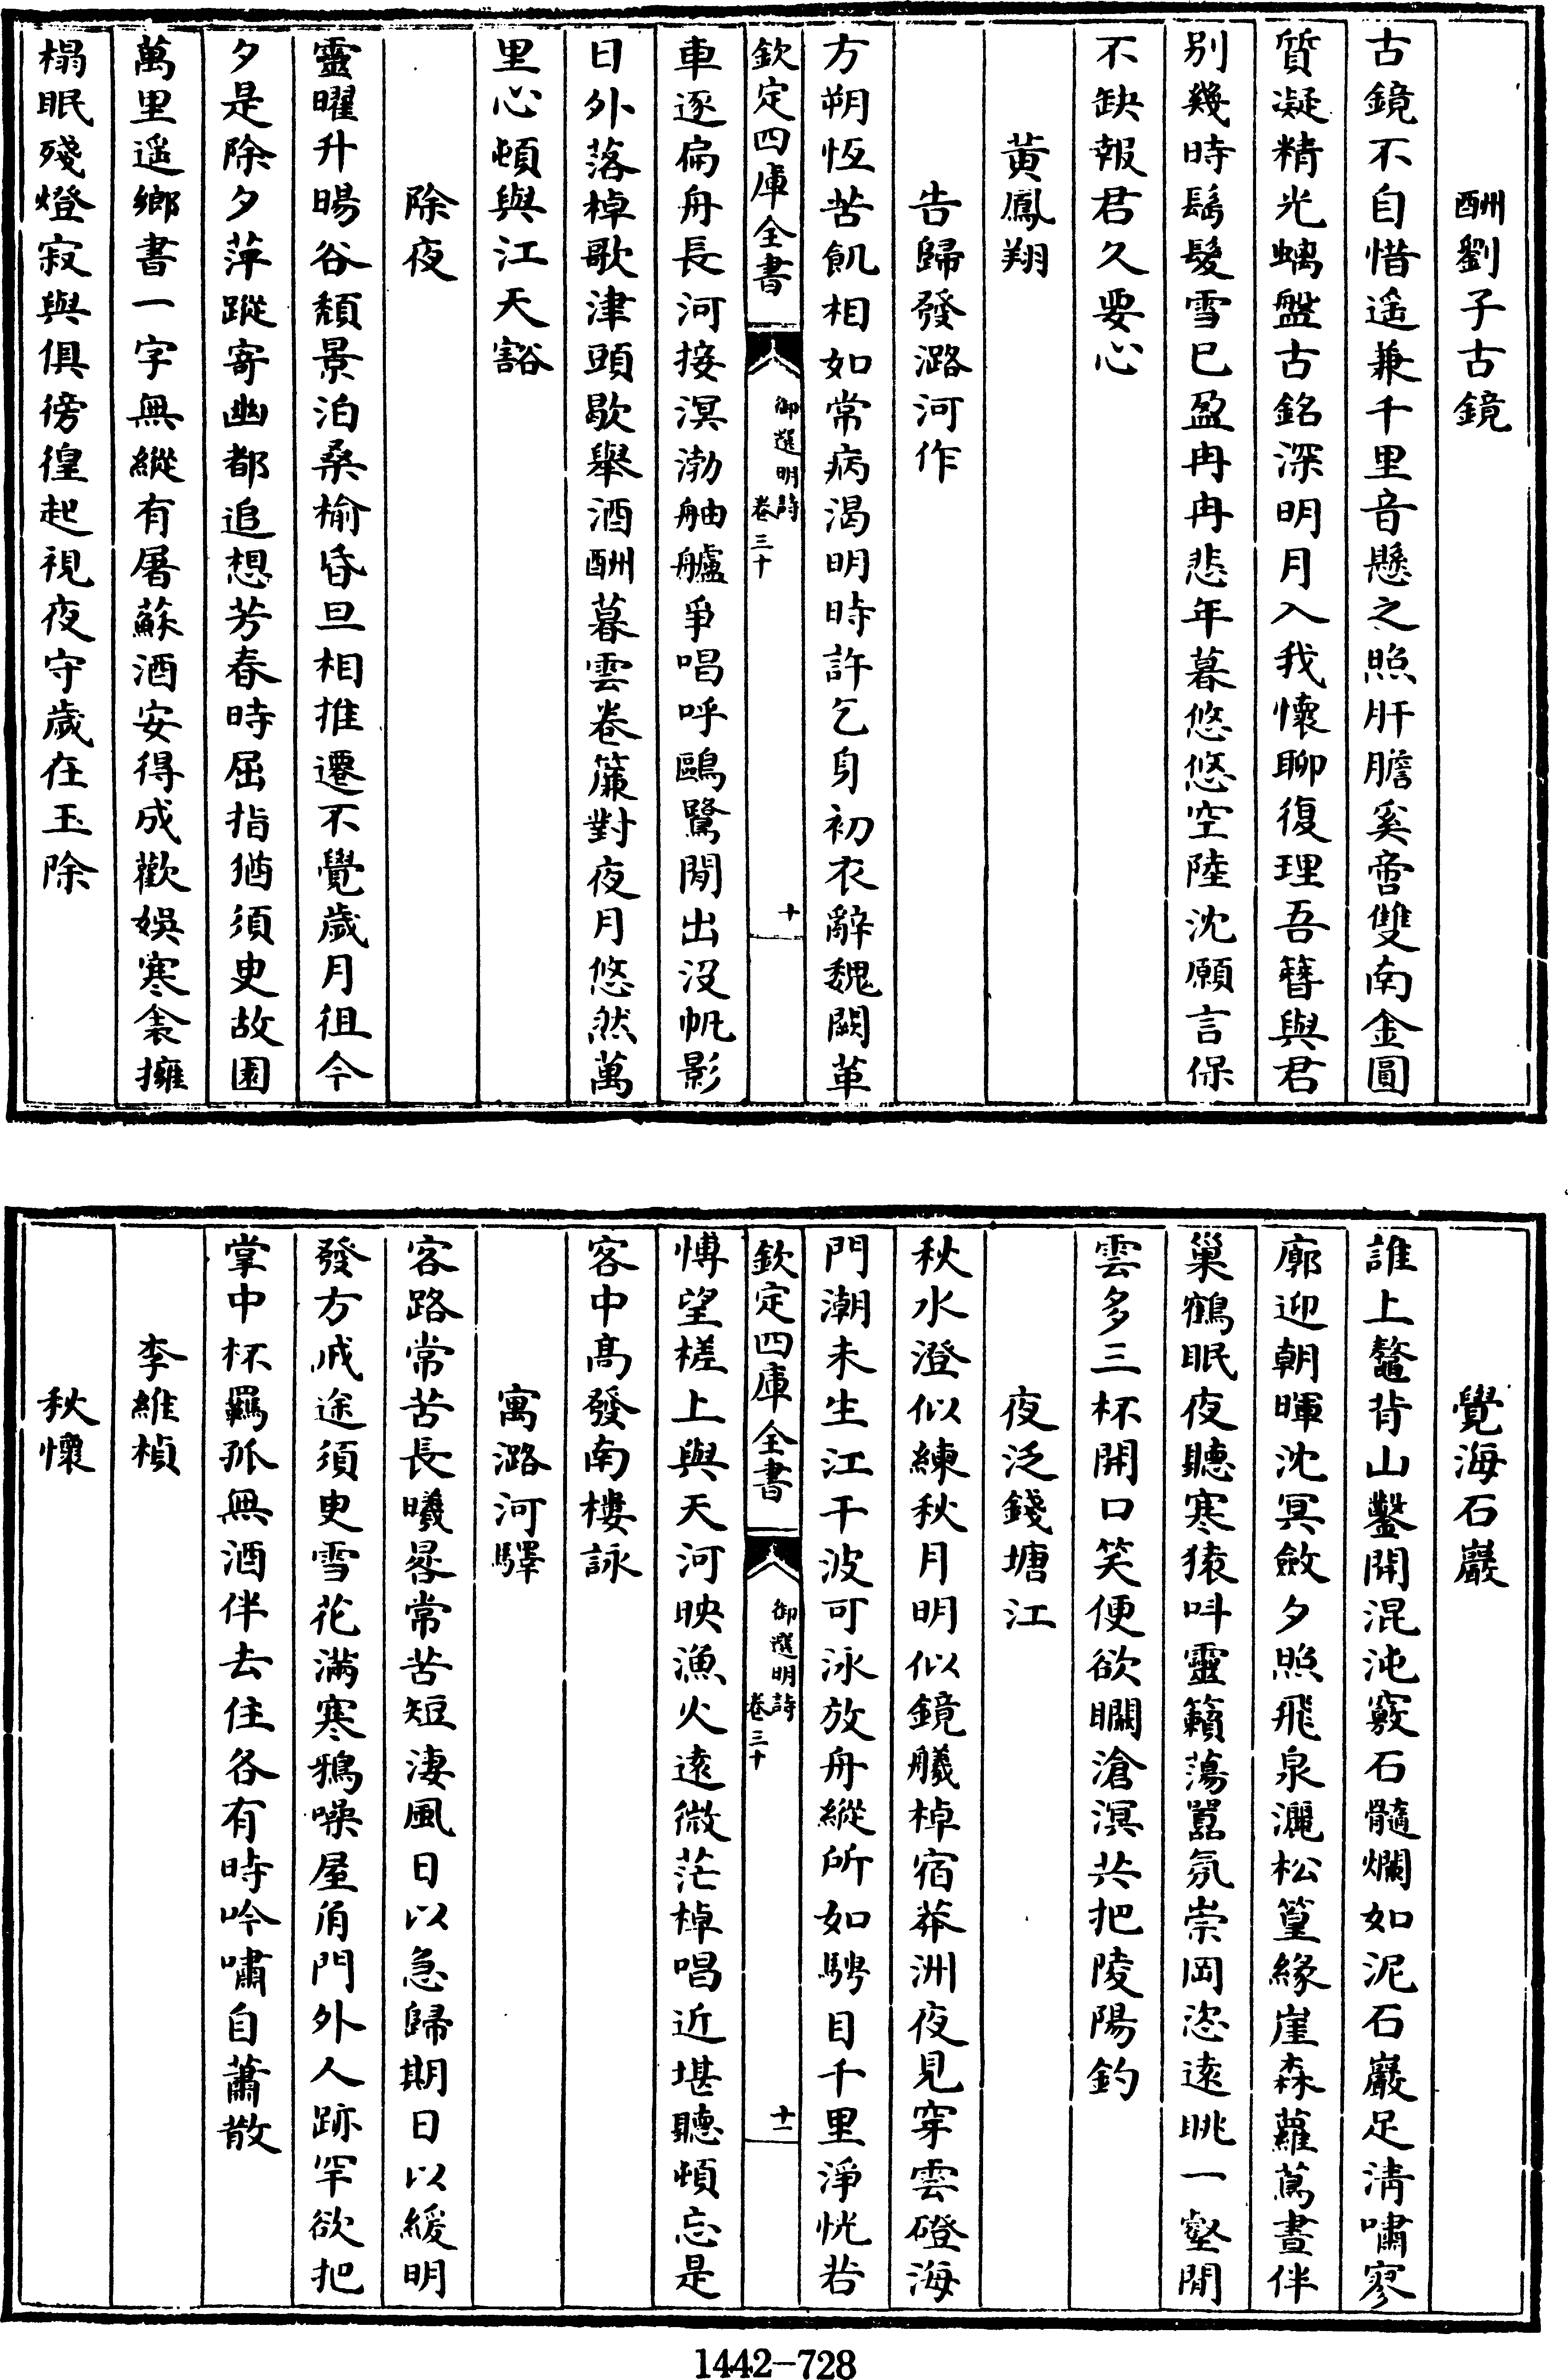 酬劉子古鏡
古鏡不自惜遥兼千里音懸之照肝膽奚啻雙南金圓
質凝精光螭盤古銘深明月入我懷聊復理吾簪與君
别幾時髩髮雪已盈冉冉悲年暮悠悠空陸沈願言保
不缺報君久要心
黄鳳翔
告歸發潞河作
方朔恆苦飢相如常病渴明時許乞身初衣辭魏闕革
欽定四庫全書
御選明詩
卷三十
十
車逐扁舟長河接溟渤舳艫爭唱呼鷗鷺閒出没帆影
日外落棹歌津頭歇舉酒酬暮雲卷簾對夜月悠然萬
里心頓與江天豁
除夜
靈曜升暘谷頽景泊桑榆昏旦相推遷不覺歲月徂今
夕是除夕萍蹤寄幽都追想芳春時屈指猶須臾故園
萬里遥鄉書一字無縱有屠蘇酒安得成歡娱寒衾擁
榻眠殘燈寂與俱徬徨起視夜守歲在玉除
覺海石巖
誰上鼇背山鑿開混沌竅石髓爛如泥石巖足清嘯寥
廓迎朝暉沈冥斂夕照飛泉灑松篁緣崖森蘿蔦晝伴
巢鶴眠夜聽寒猿呌靈籟蕩囂氛崇岡恣逺眺一壑閒
雲多三杯開口笑便欲瞷滄溟共把陵陽釣
夜泛錢塘江
秋水澄似練秋月明似鏡艤棹宿莽洲夜見穿雲磴海
門潮未生江干波可泳放舟縱所如騁目千里淨恍若
欽定四庫全書
御選明詩
卷三十
十一
博望槎上與天河映漁火逺微茫棹唱近堪聽頓忘是
客中髙發南樓詠
寓潞河驛
客路常苦長曦晷常苦短淒風日以急歸期日以緩明
發方戒途須臾雪花滿寒鴉噪屋角門外人跡罕欲把
掌中杯羈孤無酒伴去住各有時吟嘯自蕭散
李維楨
秋懷
1442-728